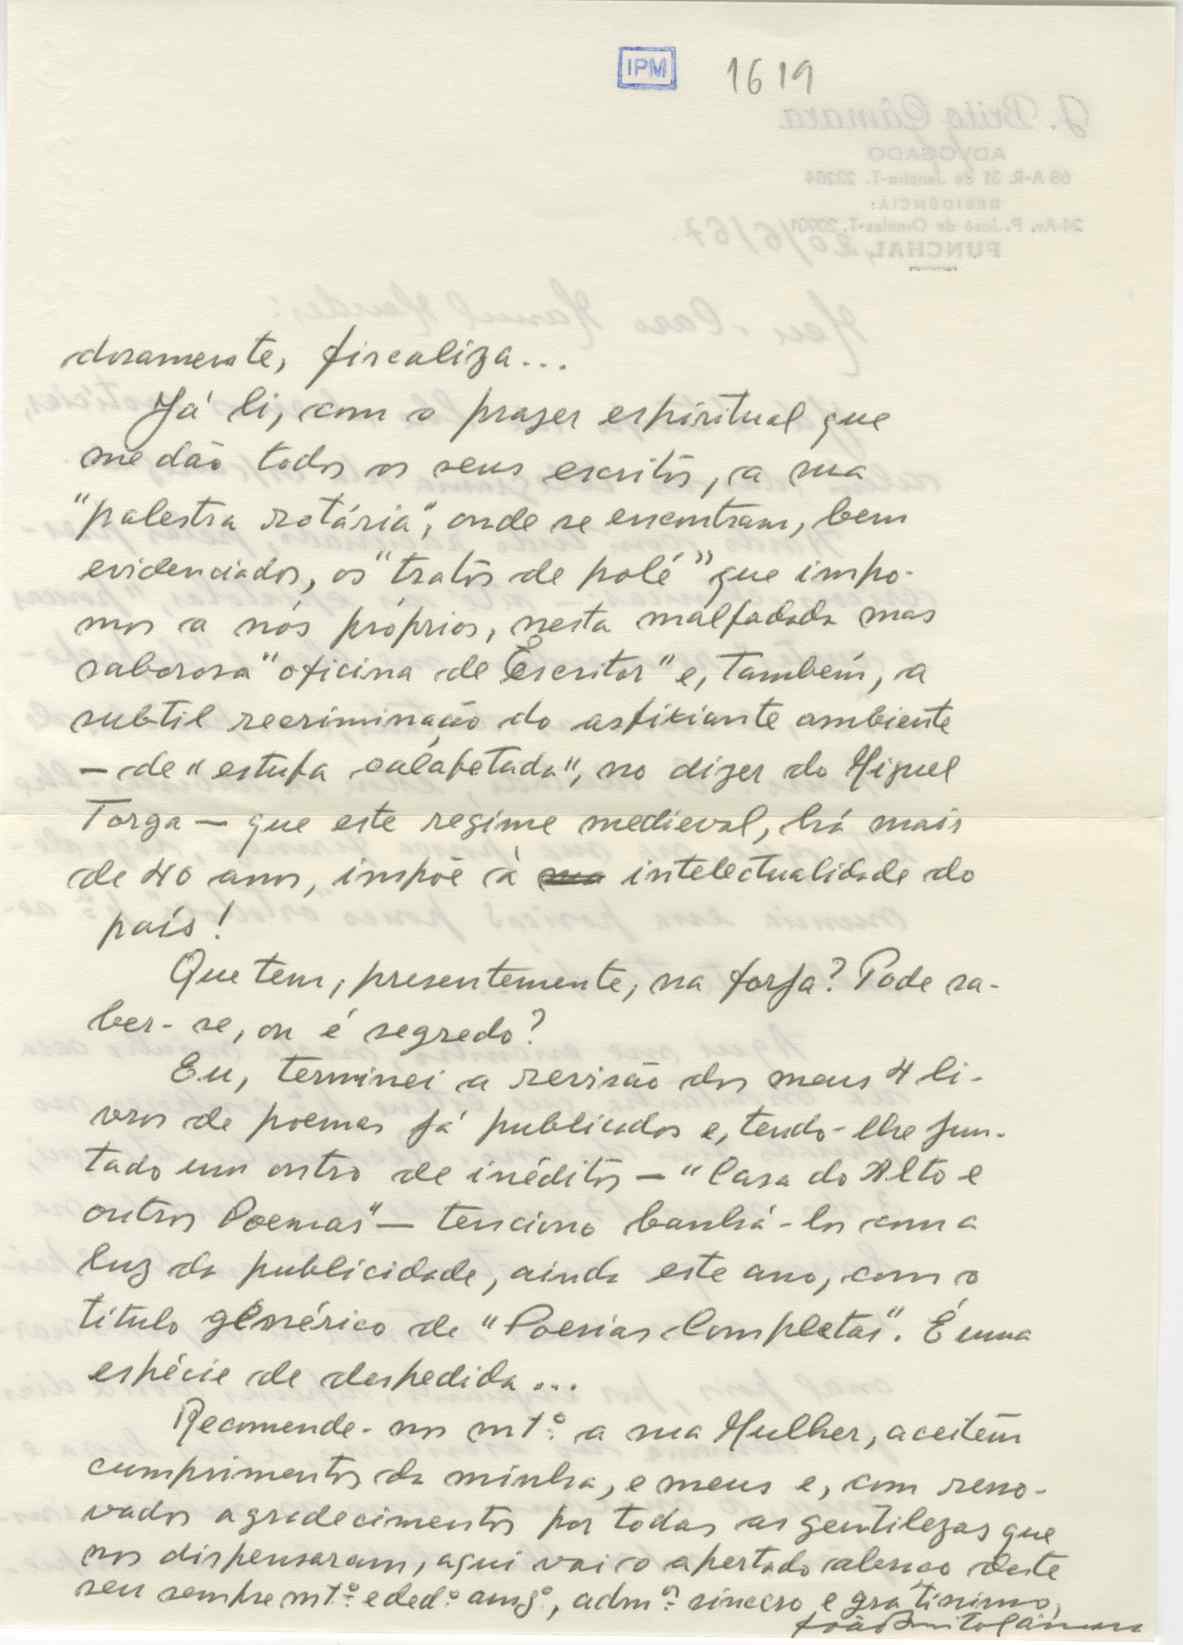 IPM 1619
J. Brito Câmara
ADVOGADO
RESIDÊNCIA:
FUNCHAL, 20/6/67.
doramente, fiscaliza...
Já li, com o prazer espiritual que
me dão todos os seus escritos, a sua
"palestra rotária", onde se encontram, bem
evidenciados, os "tratos de polé" que impo-
mos a nós próprios, nesta malfadada mas
saborosa "oficina de Escritor" e, também, a
subtil recriminação do asfixiante ambiente
— de "estufa calafetada", no dizer do Miguel
Torga — que este regime medieval, há mais
de 40 anos, impõe à sua intelectualidade do
país!
Que tem, presentemente, na forja? Pode sa-
ber-se, ou é segredo?
Eu, terminei a revisão dos meus 4 li-
vros de poemas já publicados e, tendo-lhe jun-
tado um outro de inéditos — "Casa do Alto e
outros Poemas" — tenciono banhá-los com a
luz da publicidade, ainda este ano, com o
título genérico de "Poesias Completas". É uma
espécie de despedida...
Recomende-nos mtº. a sua Mulher, aceitem
cumprimentos da minha, e meus e, com reno-
vados agradecimentos por todas as gentilezas que
nos dispensaram, aqui vai o apertado abraço deste
seu sempre mtº. e dedº. amgº, admºr. sincero e gratíssimo,
João Brito Câmara